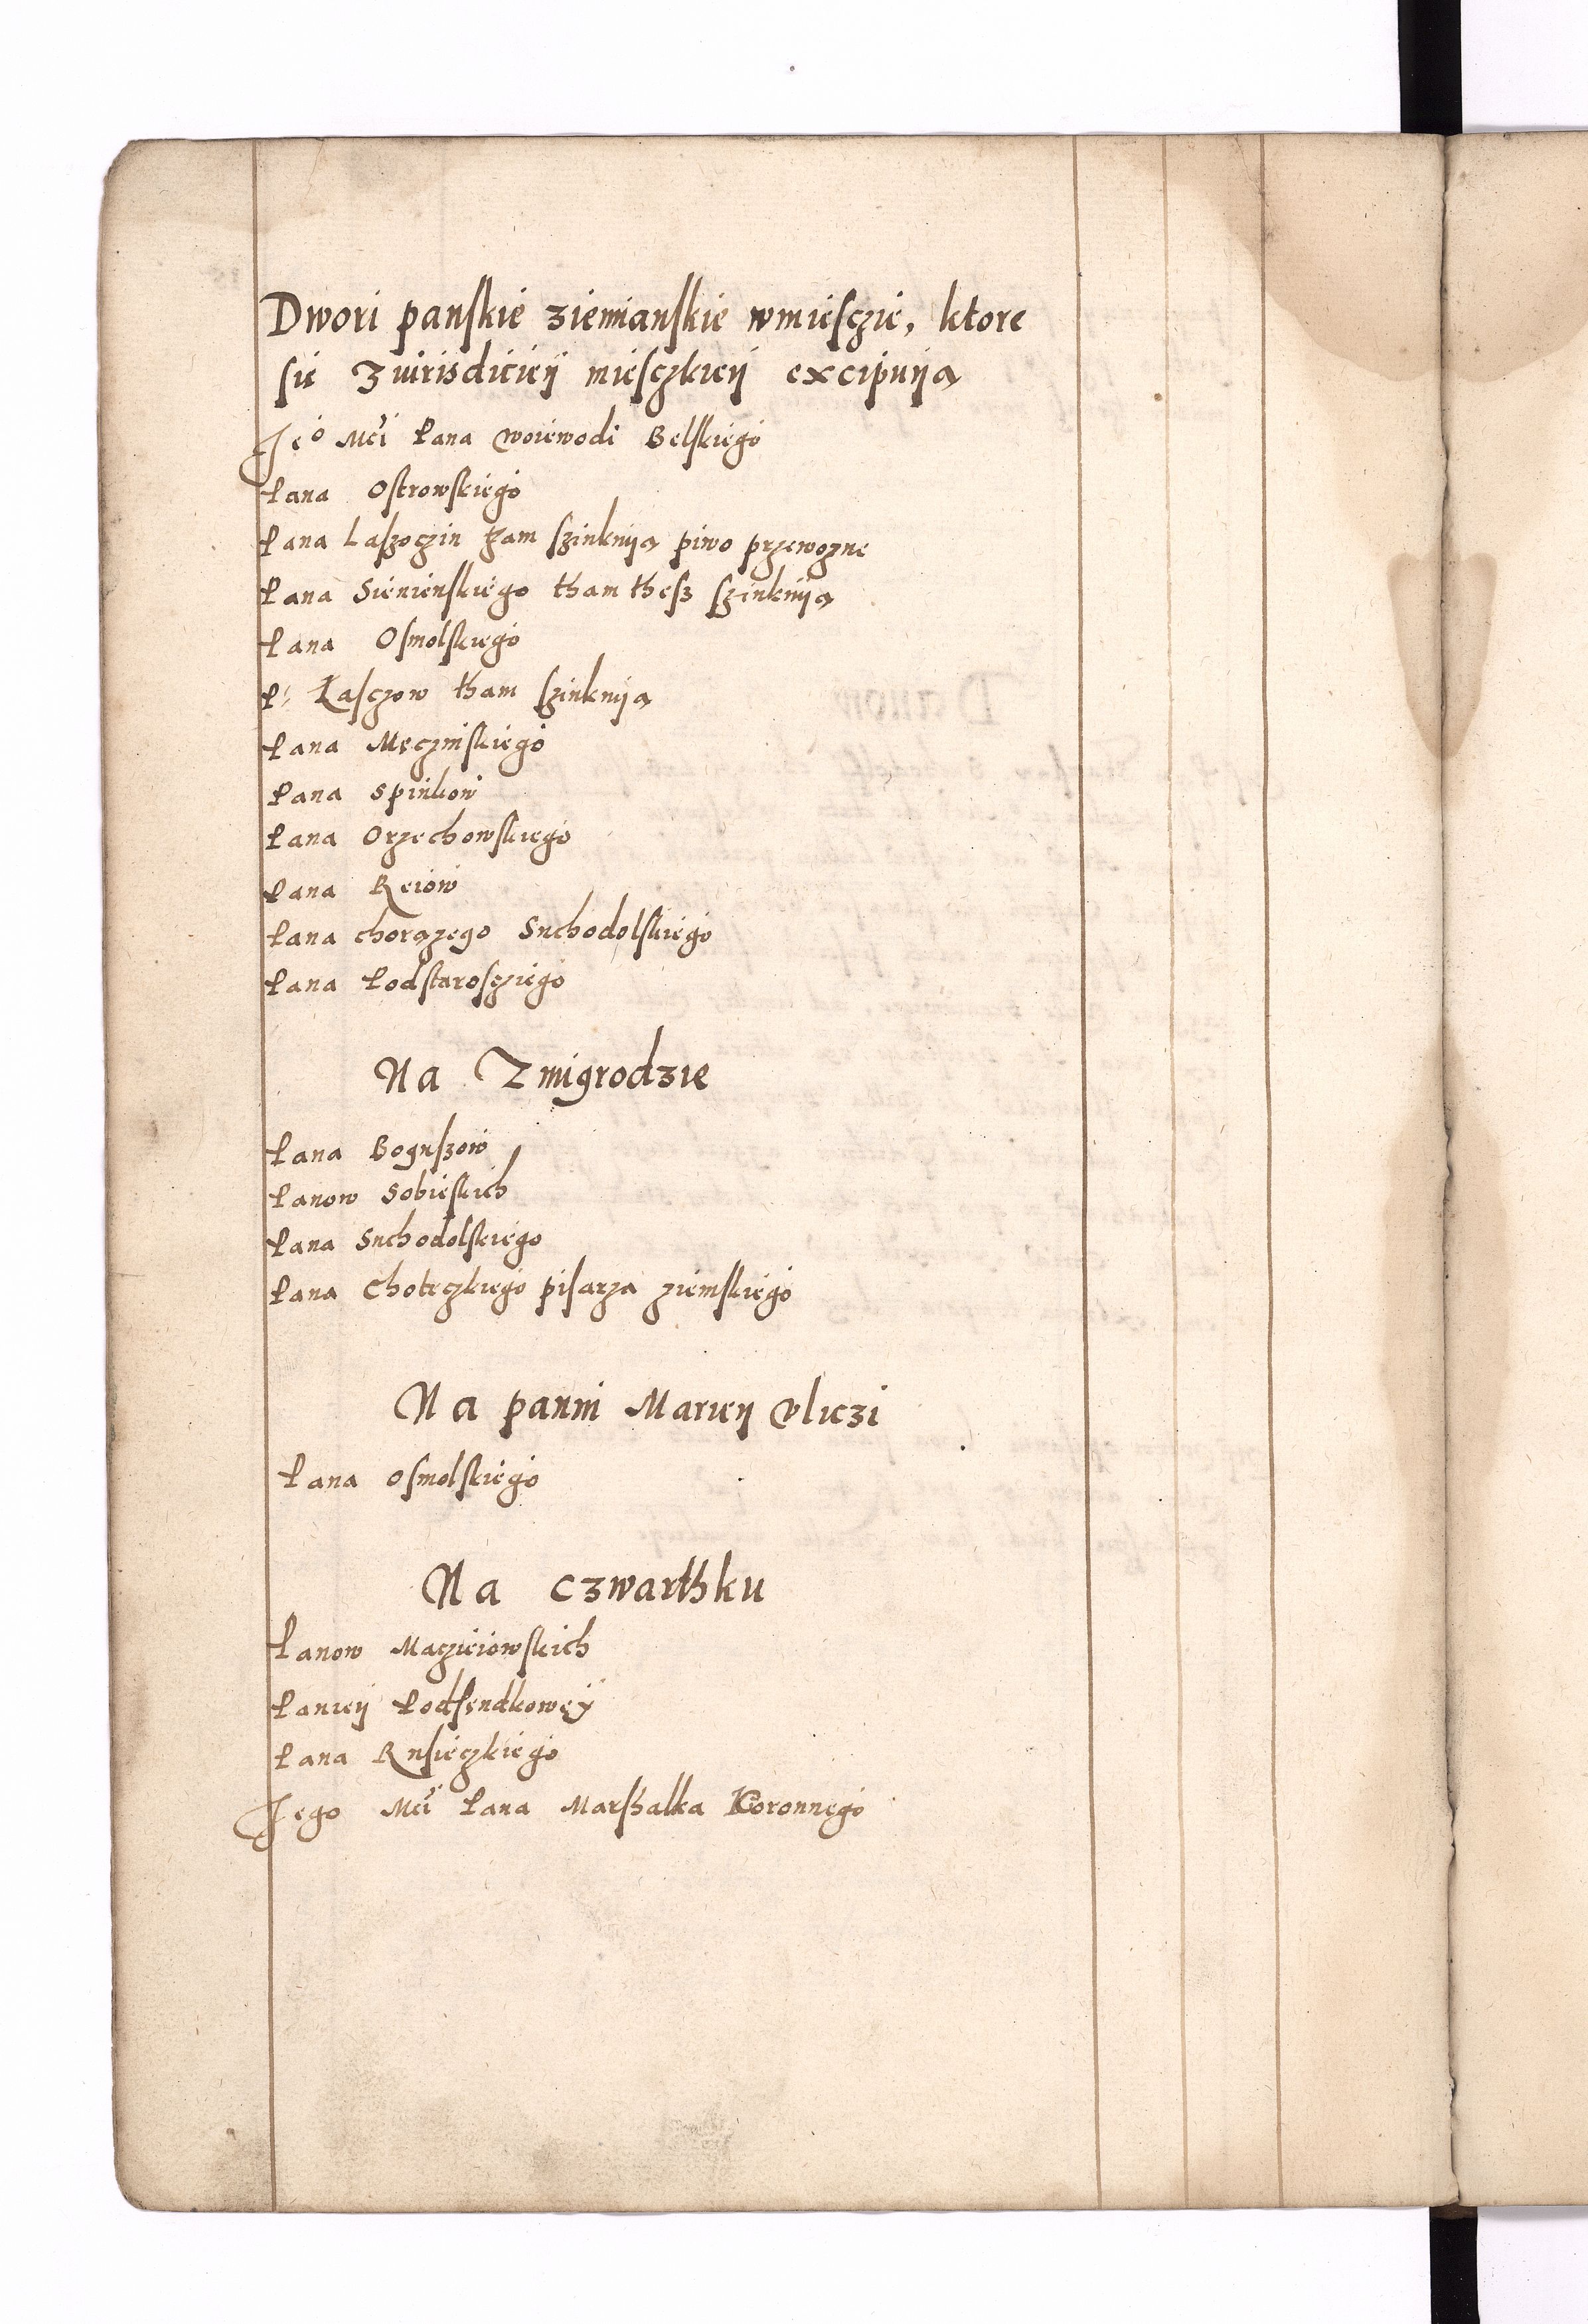 Dwori panskie ziemianskie wmiesczie, ktore
sie z iurisdiciey miesczkiey excipuiją
Jeo Mci Pana woiewodi Belskiego
Pana Ostrowskiego
Pana Laszoczin tham szinkuiją piwo przewozne
Pana Sienienskiego tham thesz szinkuiją
Pana Osmolskiego
P: Łasczow tham szinkuiją
Pana Męczinskiego
Pana Spinkow
Pana Orzechowskiego
Pana Reiow
Pana chorązego Suchodolskiego
Pana Podstarosczięgo
Na Zmigrodzie
Pana Boguszow
Panow Sobieskich
Pana Suchodolskiego
Pana Choteczkiego pisarza ziemskiego
Na panni Mariey vliczi
Pana Osmolskiego
Na czwarthku
Panow Maczieiowskich
Paniey Podsendkowey
Pana Rusieczkiego
Jego Mci Pana Marszalka Koronnego